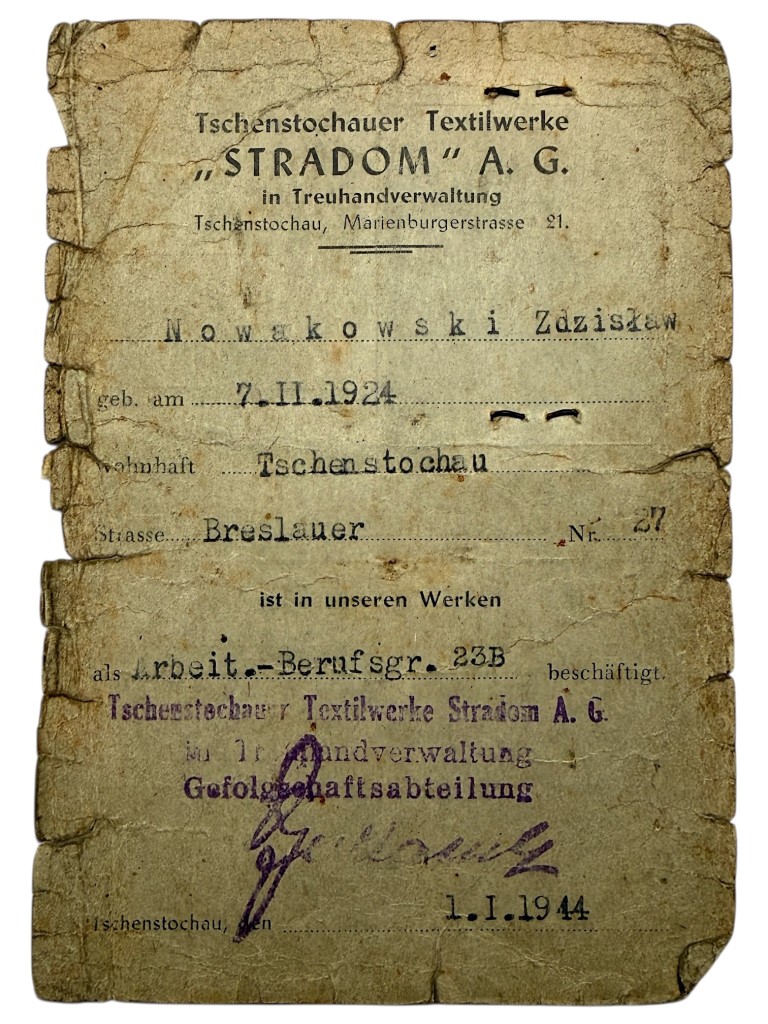 Tschenstochauer Textilwerke
„STRADOM" A. G.
in Treuhandverwaltung
Tschenstochau, Marienburgerstrasse 21.
Nowakowski Zdzisław
geb. am 7.II.1924
wohnhaft Tschenstochau
Strasse Breslauer Nr. 27
ist in unseren Werken
als Arbeit.-Berufsgr. 23B beschäftigt.
Tschenstochauer Textilwerke Stradom A. G.
in Treuhandverwaltung
Gefolgschaftsabteilung
Tschenstochau, den 1.I.1944